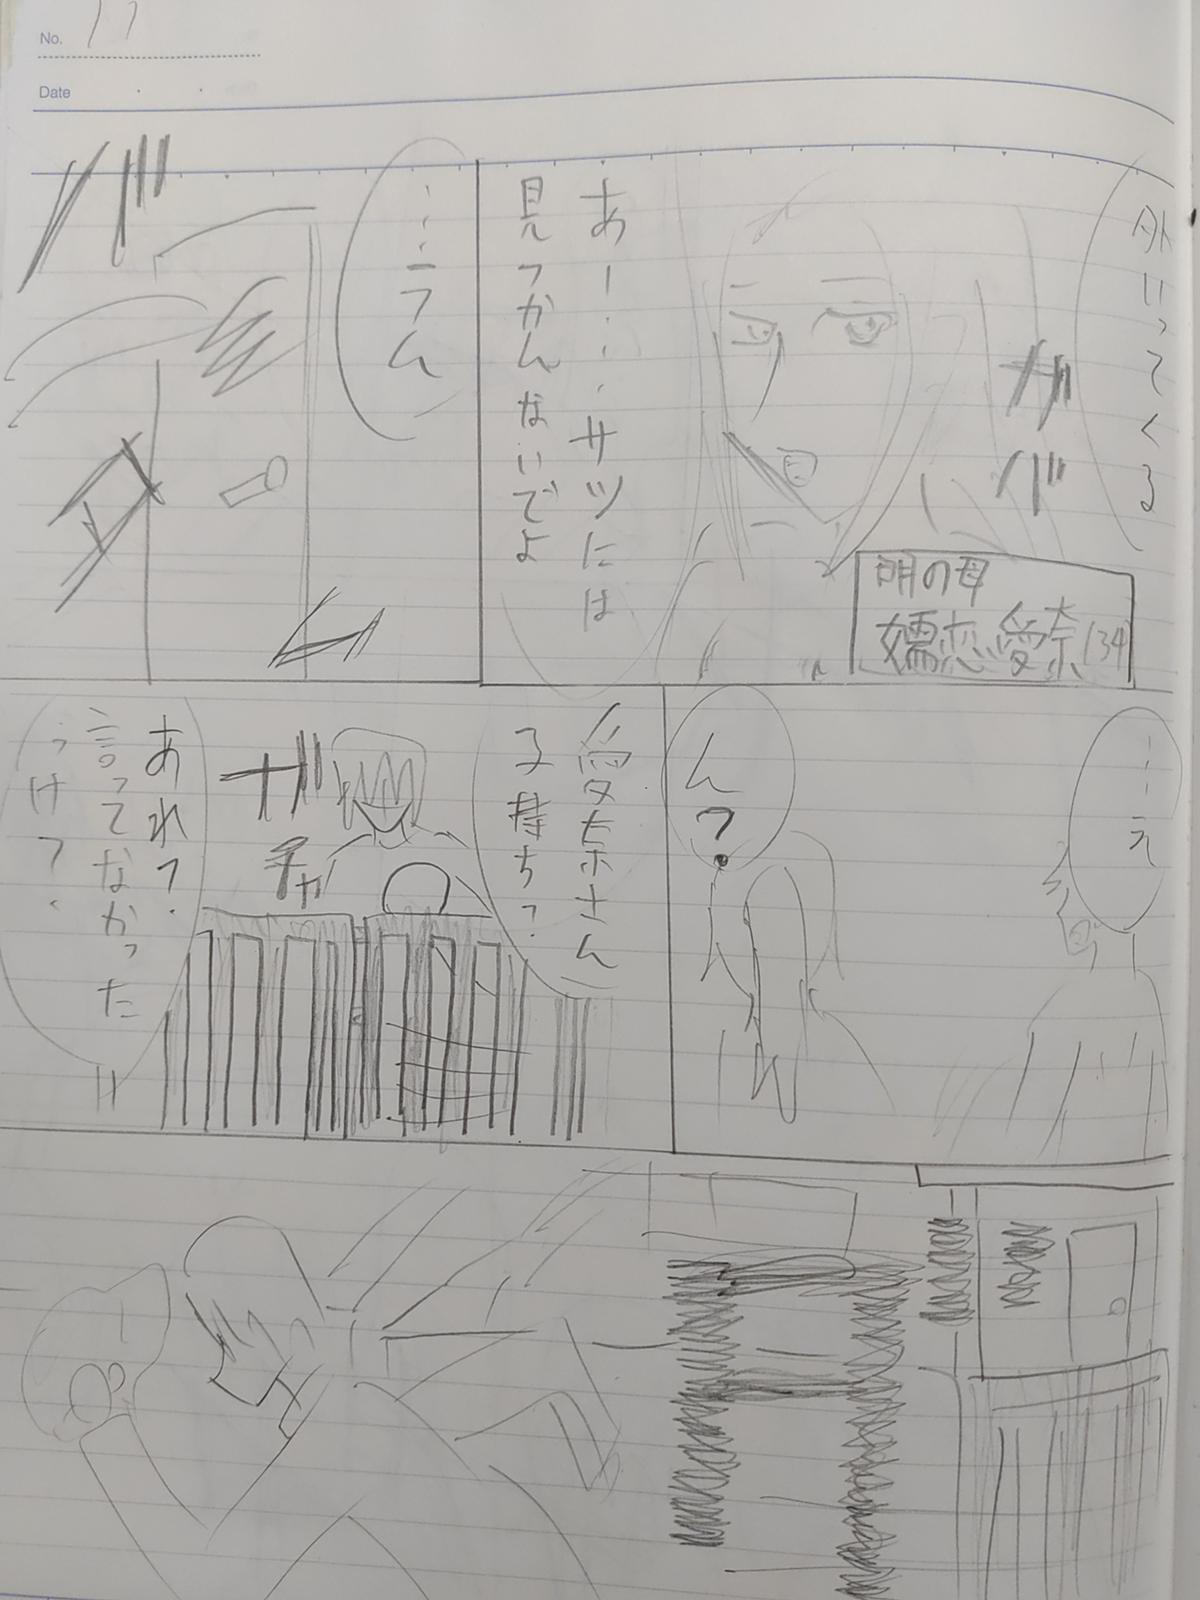 No. 17
Date
外いってくる
ガバ
明の母
嬬恋愛奈(34)
あー…サツには
見つかんないでよ
…うん
バ
…え
ん?
愛奈さん
子持ち?
ガチャ
あれ?
言ってなかった
っけ?